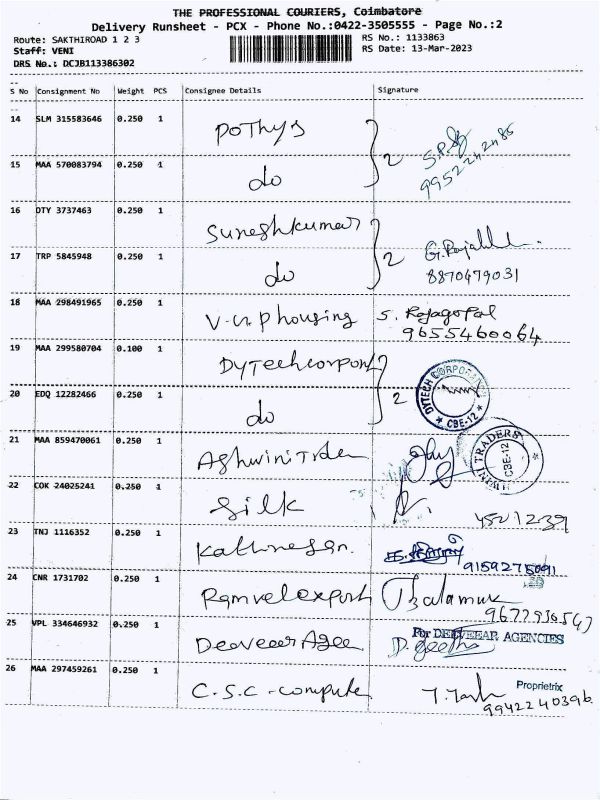 THE PROFESSIONAL COURIERS, Coimbatore
Delivery Runsheet - PCX - Phone No.:0422-3505555 - Page No.:2
Route: SAKTHIROAD 1 2 3 RS No.: 1133863
Staff: VENI RS Date: 13-Mar-2023
DRS No.: DCJB113386302
S No Consignment No Weight PCS Consignee Details Signature
14 SLM 315583646 0.250 1 Pothys
2 9952242485
15 MAA 570083794 0.250 1 do
16 OTY 3737463 0.250 1 Sureshkumar
2 8870479031
17 TRP 5845948 0.250 1 do
18 MAA 298491965 0.250 1 V.G.P housing S. Rajagopal
9655460064
19 MAA 299580704 0.100 1 Dytechcorpor
2 DYTECH CORPORATION CBE-12
20 EDQ 12282466 0.250 1 do
21 MAA 859470061 0.250 1 AshwiniTrde ASHWINI TRADERS CBE-12
22 COK 24025241 0.250 1 Silk
4521239
23 TNJ 1116352 0.250 1 Kathiresan.
9159275091
24 CNR 1731702 0.250 1 Ramvelexport
9677930547
25 VPL 334646932 0.250 1 Deeveear Agee For DEEVEEAR AGENCIES
D. Geetha
Proprietrix
26 MAA 297459261 0.250 1 C.S.C - compute
9942240396